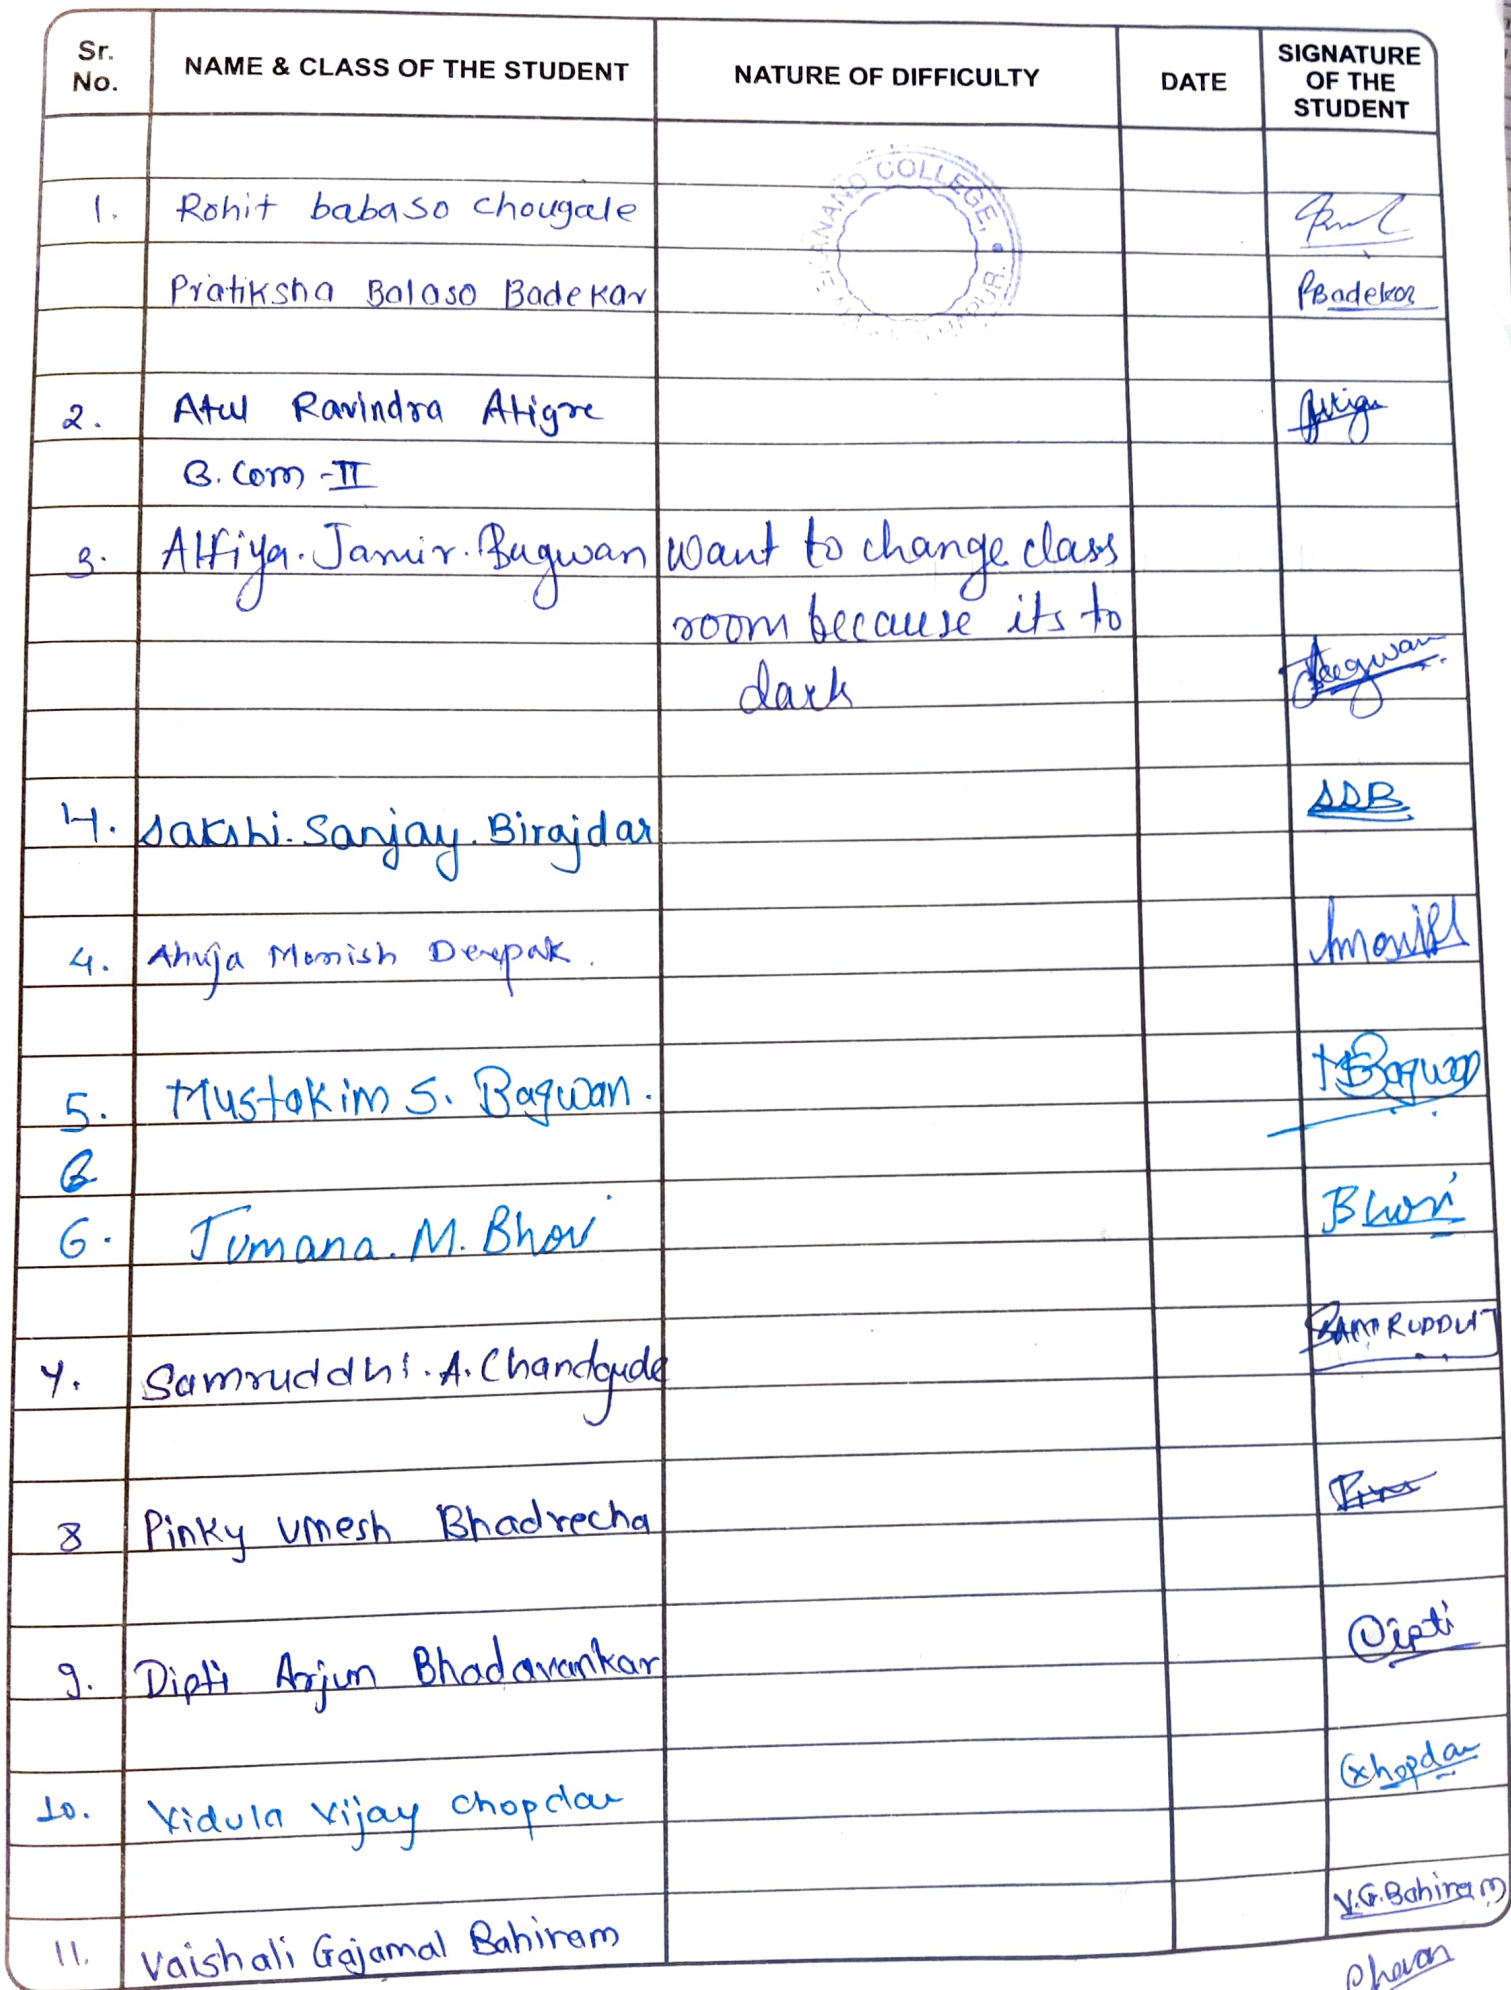 Sr. No. NAME & CLASS OF THE STUDENT NATURE OF DIFFICULTY DATE SIGNATURE OF THE STUDENT
COLLEGE,
1. Rohit babaso chougale
Pratiksha Balaso Badekar PBadekar
2. Atul Ravindra Atigre
B. Com - II
3. Alfiya. Jamir. Bagwan want to change class
room because its to
dark Bagwan
4. Sakshi. Sanjay. Birajdar SSB
4. Ahuja Monish Deepak.
5. Mustakim S. Bagwan. MBagwan
6
6. Jumana. M. Bhori Bhori
7. Samruddhi. A. Chandgude SAMRUDDHI
8 Pinky Umesh Bhadrecha
9. Dipti Arjun Bhadavankar Dipti
10. Vidula Vijay Chopdar Chopdar
11. Vaishali Gajamal Bahiram V.G.Bahiram